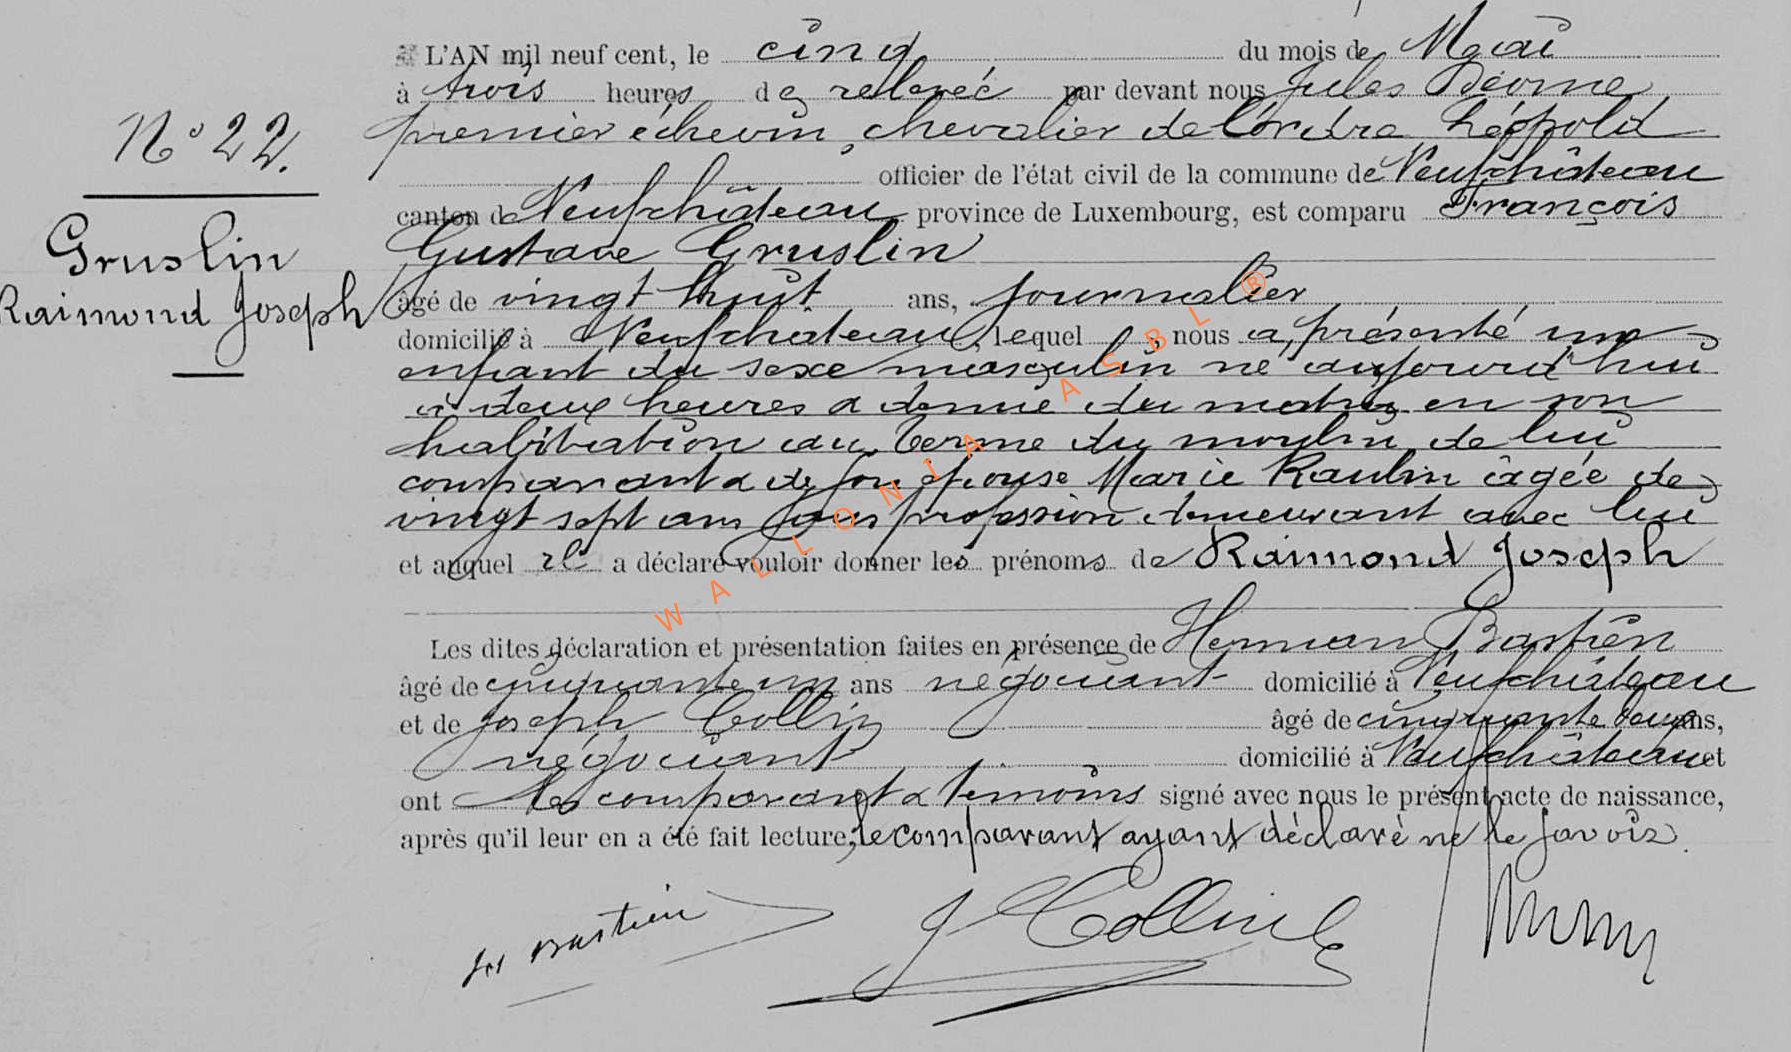 L'AN mil neuf cent, le cinq du mois de Mai
à trois heures de relevée par devant nous Jules
premier échevin, chevalier de l'ordre Léopold
officier de l'état civil de la commune de Neufchâteau
canton de Neufchâteau, province de Luxembourg, est comparu François
Gustave Gruslin
âgé de vingt huit ans, journalier
domicilié à Neufchâteau, lequel, nous a présenté un
enfant du sexe masculin né aujourd'hui
à deux heures & demie du matin en son
habitation au Terme du moulin de lui
comparant & de son épouse Marie Raulin âgée de
vingt sept ans sans profession demeurant avec lui
et auquel il a déclaré vouloir donner les prénoms de Raimond Joseph
Les dites déclaration et présentation faites en présence de Herman Bastien
âgé de cinquante un ans négociant domicilié à Neufchâteau
et de Joseph Collin âgé de cinquante ans,
négociant domicilié à Neufchâteau et
ont les comparant & témoins signé avec nous le présent acte de naissance,
après qu'il leur en a été fait lecture, le comparant ayant déclaré ne le savoir.
N° 22.
Gruslin
Raimond Joseph
Bastien
J Collin
WALLONIA ASBL ®